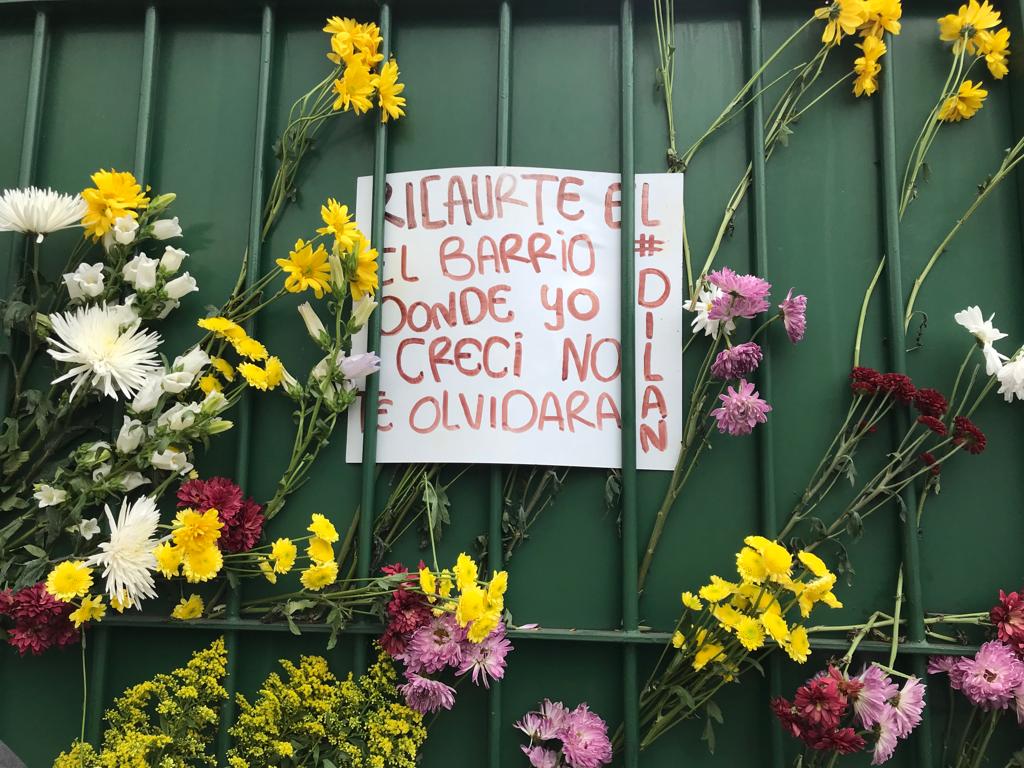 RICAURTE EL
EL BARRIO
DONDE YO
CRECi NO
TE OLVIDARA
#DILAN